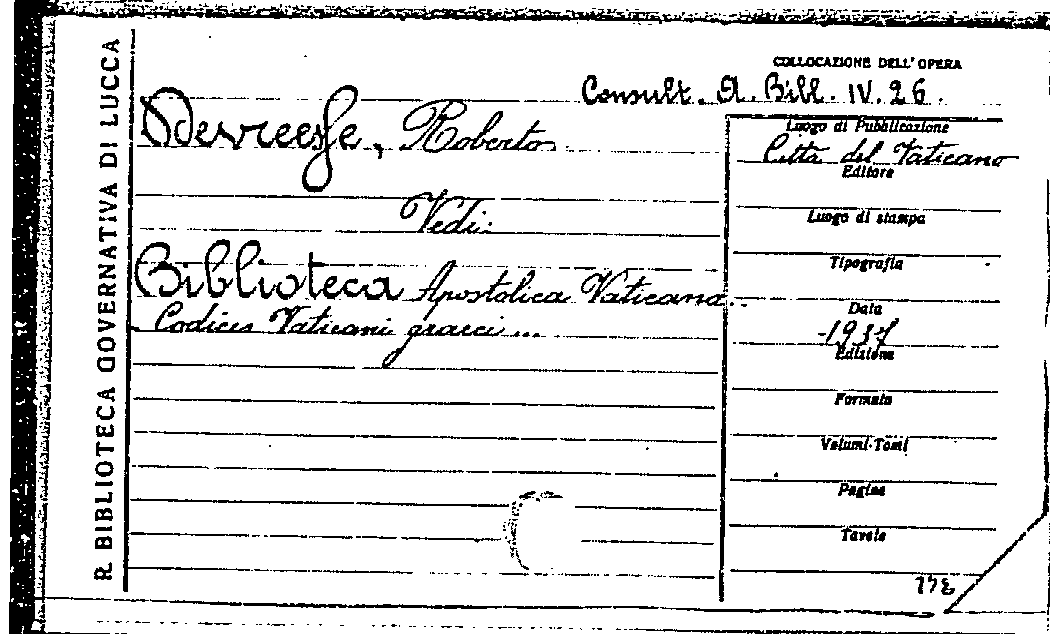 R. BIBLIOTECA GOVERNATIVA DI LUCCA
COLLOCAZIONE DELL'OPERA
Consult. A. Bibl. IV. 26.
Devreesse, Roberto
Vedi:
Biblioteca Apostolica Vaticana.
Codices Vaticani graeci ...
Luogo di Pubblicazione
Città del Vaticano
Editore
Luogo di stampa
Tipografia
Data
1937
Edizione
Formato
Volumi-Tomi
Pagine
Tavole